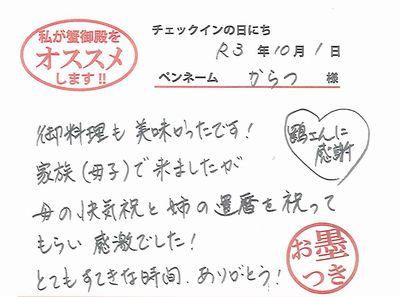 私が蟹御殿を
オススメ
します!!
チェックインの日にち
R3 年 10 月 1 日
ペンネーム からつ 様
御料理も美味かったです!
家族(母子)で来ましたが
母の快気祝と姉の還暦を祝って
もらい感激でした!
とてもすてきな時間、ありがとう!
さんに
感謝
お墨
つき